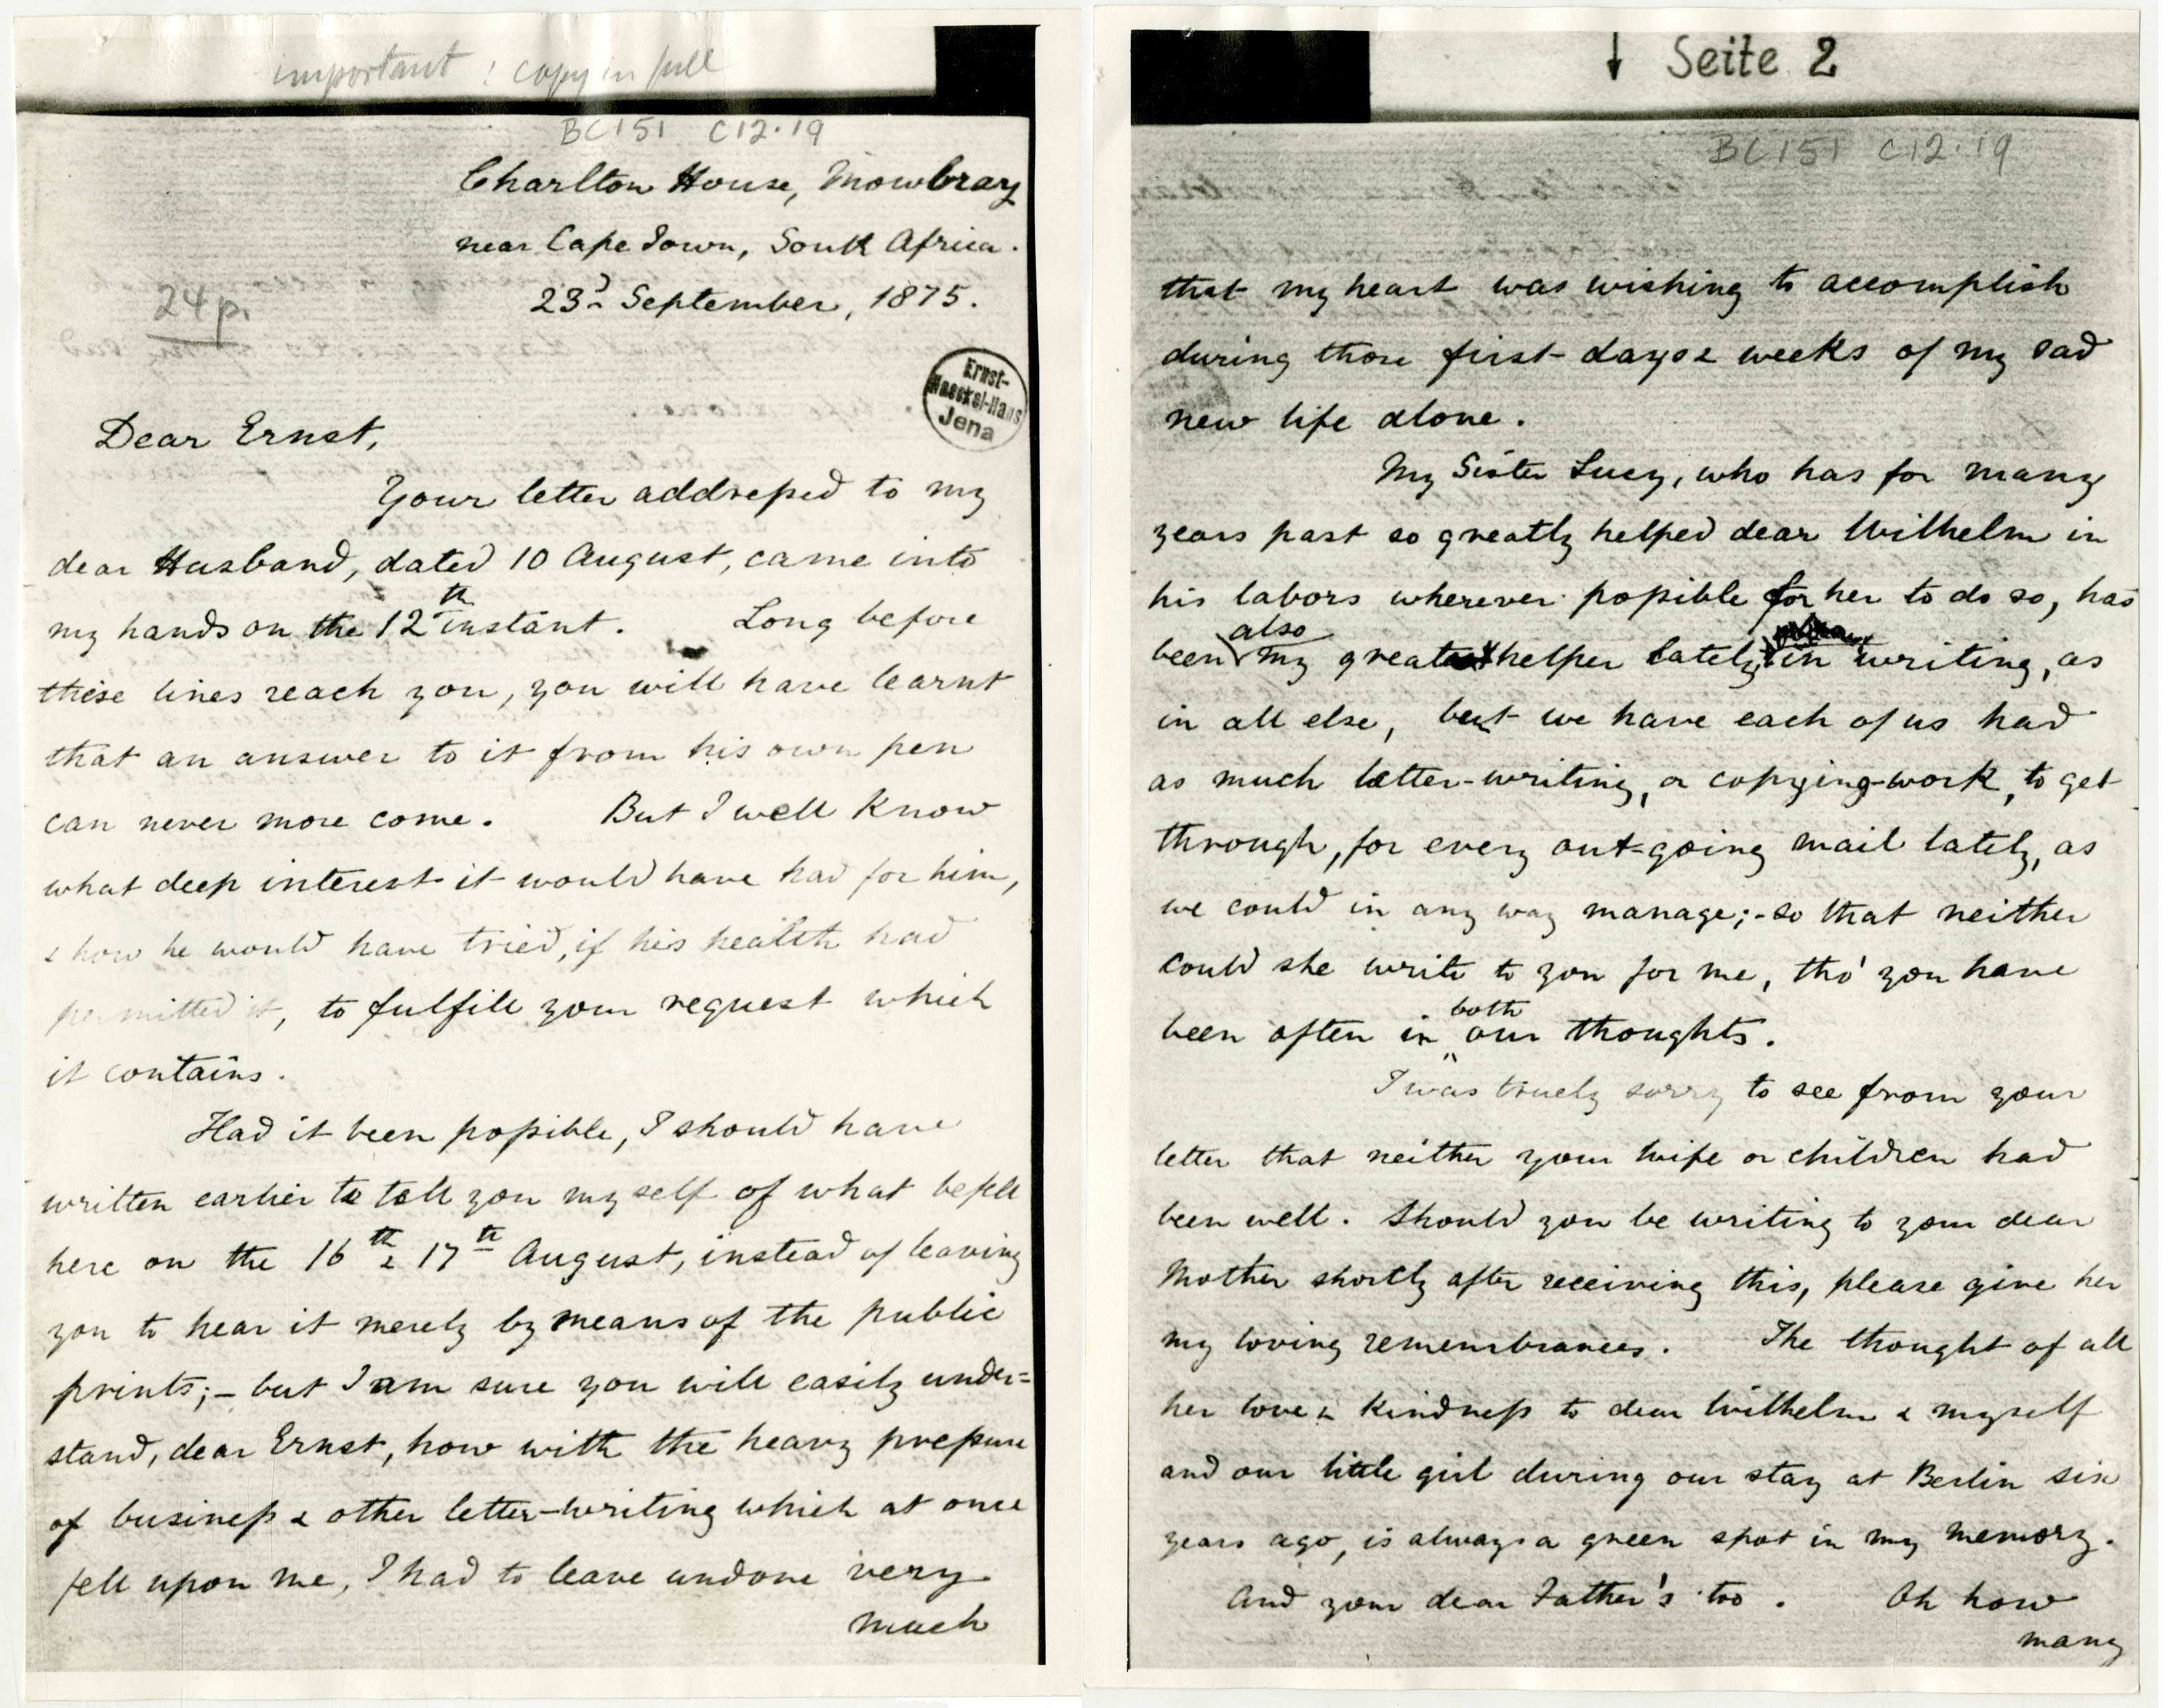 important : copy in full
BC151 C12.19
Charlton House, Mowbray
near Cape Town, South Africa.
23d September, 1875.
24 p.
Ernst-
Haeckel-Haus
Jena
Dear Ernst,
Your letter addressed to my
dear Husband, dated 10 August, came into
my hands on the 12th instant. Long before
these lines reach you, you will have learnt
that an answer to it from his own pen
can never more come. But I well know
what deep interest it would have had for him,
& how he would have tried, if his health had
permitted it, to fulfill your request which
it contains.
Had it been possible, I should have
written earlier to tell you myself of what befell
here on the 16th & 17th August, instead of leaving
you to hear it merely by means of the public
prints; - but I am sure you will easily under=
stand, dear Ernst, how with the heavy pressure
of business & other letter-writing which at once
fell upon me, I had to leave undone very
much
↓ Seite 2
BC151 C12.19
that my heart was wishing to accomplish
during those first days & weeks of my sad
new life alone.
My Sister Lucy, who has for many
years past so greatly helped dear Wilhelm in
his labors wherever possible for her to do so, has
been also my great helper lately in writing, as
in all else, but we have each of us had
as much letter-writing, or copying-work, to get
through, for every out-going mail lately, as
we could in any way manage; - so that neither
could she write to you for me, tho' you have
been often in both our thoughts.
I was truely sorry to see from your
letter that neither your wife or children had
been well. Should you be writing to your dear
Mother shortly after receiving this, please give her
my loving remembrances. The thought of all
her love & kindness to dear Wilhelm & myself
and our little girl during our stay at Berlin six
years ago, is always a green spot in my memory.
And your dear Father's too. Oh how
many